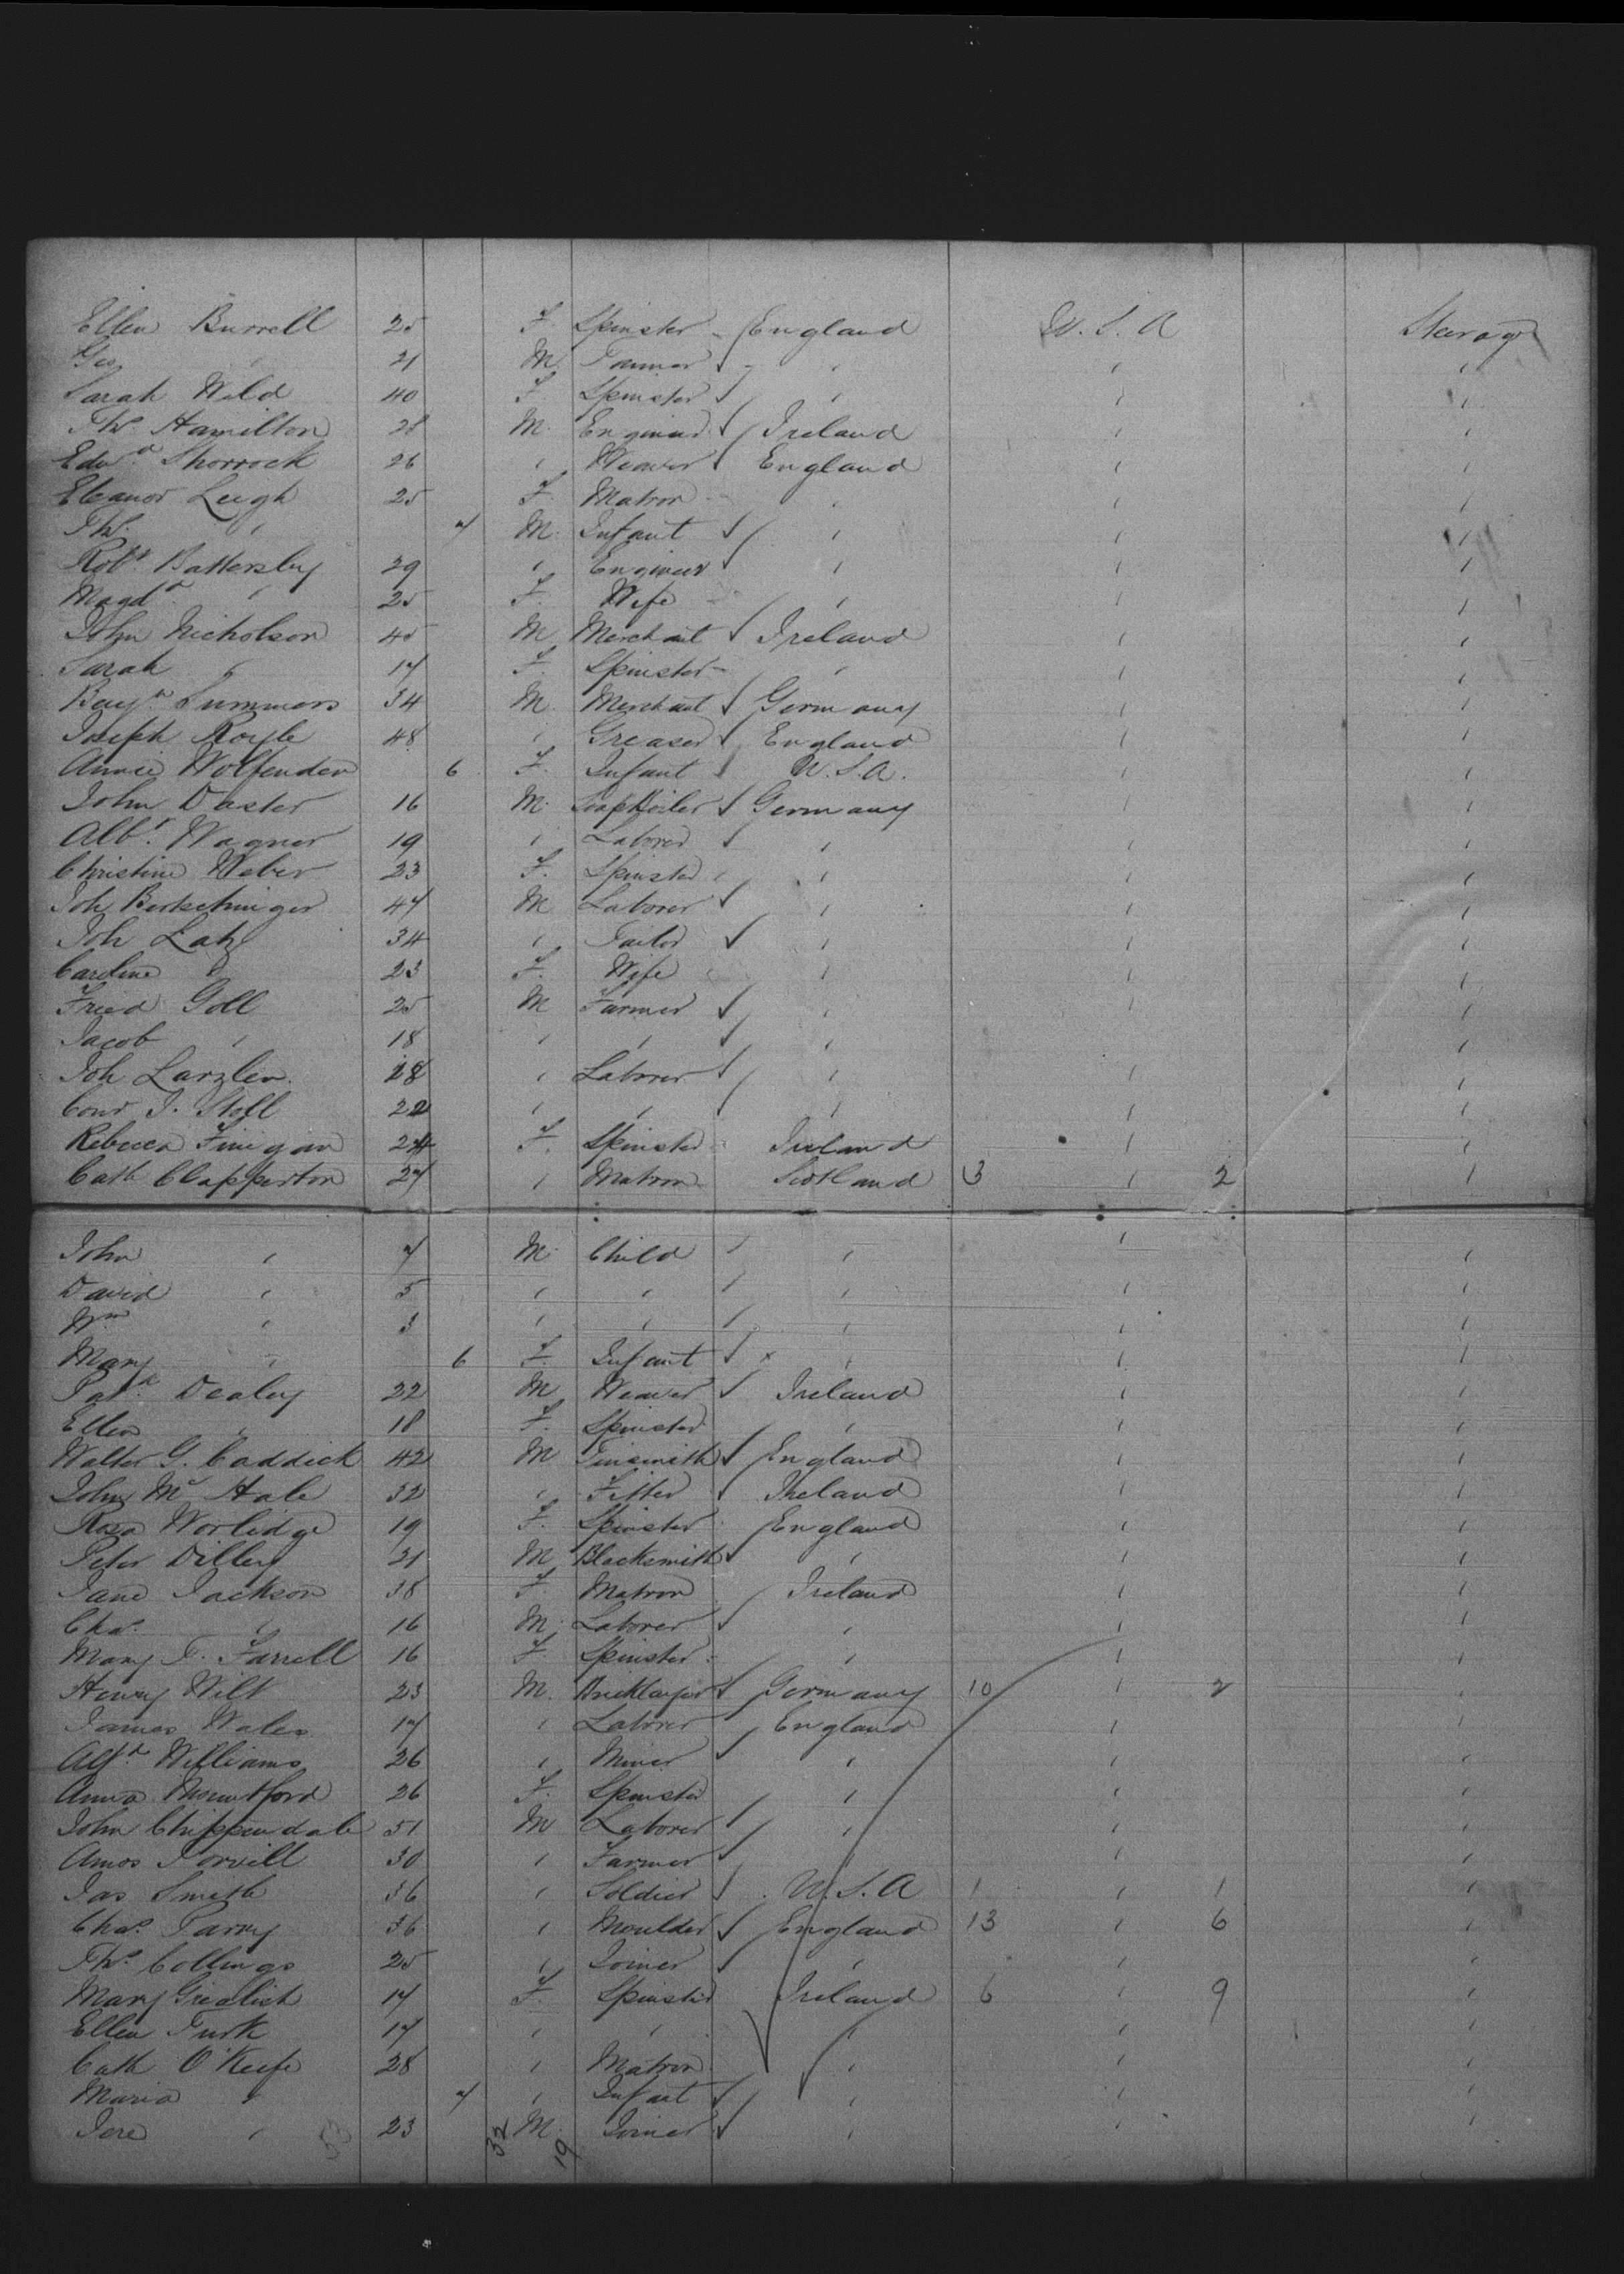 Ellen Burrell 25 F. Spinster England U.S.A Steerage
Geo " 21 M. Farmer " " "
Sarah Wild 40 F Spinster " " "
Thos. Hamilton 28 M. Engineer Ireland " "
Edwd. Shorrock 26 " Weaver England " "
Eleanor Leigh 25 F. Matron " " "
Thos. " 7 M. Infant " " "
Robt Battersby 29 " Engineer " " "
Magda. " 25 F. Wife " " "
John Nicholson 45 M Merchant Ireland " "
Sarah " 17 F. Spinster " " "
Benjn. Summers 34 M. Merchant Germany " "
Joseph Royle 48 " Greaser England " "
Annie Wolfenden 6 F. Infant U.S.A. " "
John Daster 16 M. Soap Boiler Germany " "
Albt. Wagner 19 " Laborer " " "
Christine Weber 23 F. Spinster " " "
Joh 47 M Laborer " " "
Joh Latz 34 " Tailor " " "
Caroline " 23 F. Wife " " "
Fried Goll 25 M Farmer " " "
Jacob " 18 " " " "
Joh Larzlen 28 " Laborer " " "
Conr J. Stoll 22 " " " " "
Rebecca Finegan 24 F. Spinster Ireland " "
Cath Clapperton 27 " Matron Scotland 3 " 2 "
John " 7 M. Child " " "
David " 5 " " " " "
Wm " 3 " " " " "
Mary " 6 F. Infant " " "
Patk. Dealey 22 M Weaver Ireland " "
Ellen " 18 F. Spinster " " "
Walter G. Caddick 42 M Tinsmith England " "
John McHale 32 " Fitter Ireland " "
Rosa Worledge 19 F. Spinster England " "
Peter Dilley 31 M Blacksmith " " "
Jane Jackson 38 F Matron Ireland " "
Chas. " 16 M. Laborer " " "
Mary T. Farrell 16 F Spinster " " "
Henry Wilt 23 M. Bricklayer Germany 10 " 2 "
James Wales 17 " Laborer England " "
Alfd. Williams 26 " Miner " " "
Anna Mountford 26 F. Spinster " " "
John Chippendale 51 M Laborer " " "
Amos 30 " Farmer " " "
Jas Smith 36 " Soldier U.S.A 1 " 1 "
Chas. Parry 36 " Moulder England 13 " 6 "
Thos. Collings 25 " Joiner " " "
Mary Grealish 17 F. Spinster Ireland 6 " 9 "
Ellen Turk 17 " " " " "
Cath O'Keefe 28 " Matron " " "
Maria " 7 " Infant " " "
Jere " 53 23 32 M. 19 Joiner " " "